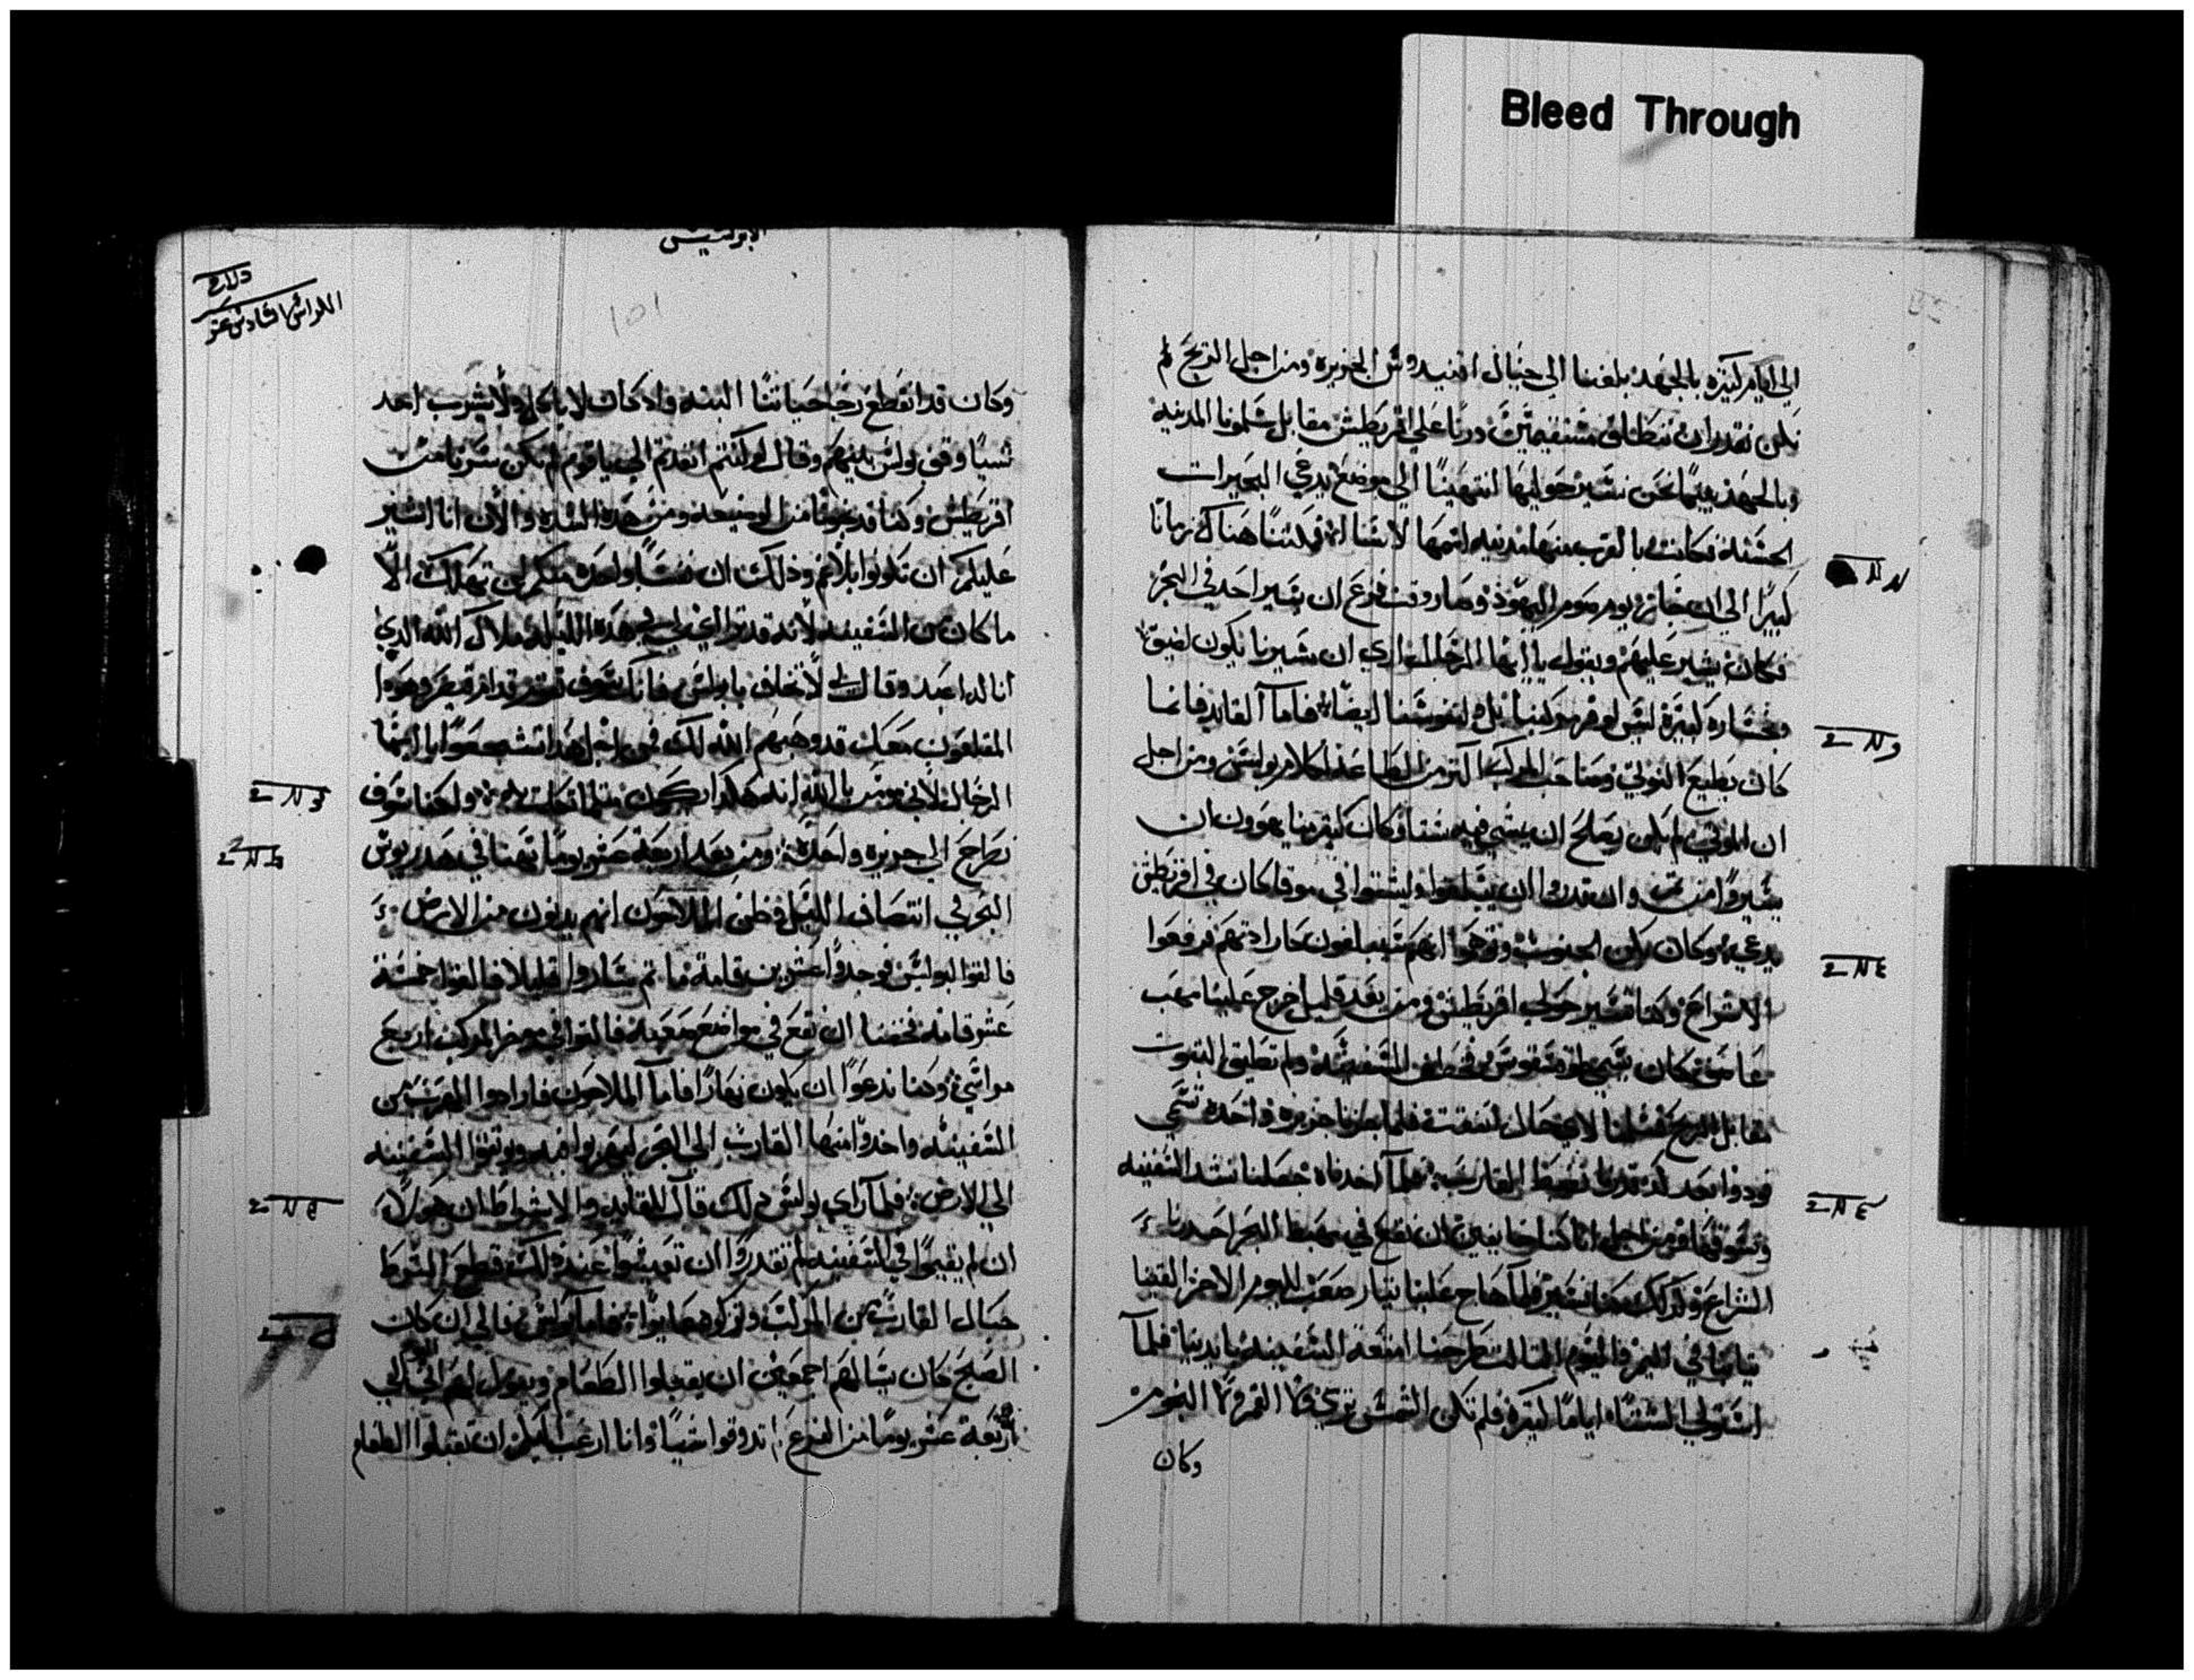 Bleed Through
الى ايام كثيره بالجهد بلغنا الى حيال اقنيدوس الجزيره ومن اجل الريح لم
نكن نقدر ان ننطلق مستقيمين درنا على اقريطش مقابل سلمونا المدينه
وبالجهد بينما نحن نسير حواليها انتهينا الى موضع يدعى البحيرات
الحسنه فكانت بالقرب منها مدينه اسمها لاسا فلبثنا هناك زمانا
كبيرا الى ان جاز يوم صوم اليهود وصار وقت فزع ان يسير احد في البحر
فكان يشير عليهم ويقول يا ايها الرجال اري ان مسيرنا يكون بضيق
وبخساره كثيره ليس لوقر مركبنا بل ولنفوسنا ايضا فاما القايد فانما
كان يطيع النوتي وصاحب المركب اكثر من كلام بولس ومن اجل
ان لم يكن يصلح ان يشتى فيه شتا وكان كثير منا يهوون ان
يسيروا من ثم وان قدروا ان يبلغوا ويشتوا في موقا كان في اقريطش
يدعى وكان الجنوب انهم سيبلغون كارادتهم فرفعوا
الاشراع وكنا نسير حول اقريطش ومن بعد قليل خرج علينا مهب
عاصف كان يسمى فخطف السفينه ولم تطيق الثبوت
مقابل الريح فلما جزنا جزيره واحده تسمى
قودوا بعد كد قدرنا نضبط القارب فلما اخدناه جعلنا نشد السفينه
من اجل انا كنا خايفين ان نقع في مهبط البحر احدرنا
الشراع وكدلك كنا نسير فلما هاج علينا تيار صعب لليوم الاخر القينا
في اليم واليوم الثالث طرحنا امتعة السفينه بايدينا فلما
استولى الشتاء اياما كثيره فلم تكن الشمس ترى ولا القمر ولا النجوم
وكان
الابركسيس
101
الكراس السادس عشر
وكان قد انقطع رجا حياتنا البته واد كان لا ياكل ولا يشرب احد
شيا وقف بولس بينهم وقال لو كنتم الي يا قوم لم نكن سرنا من
اقريطش وكنا قد نجونا من الوضيعه ومن هده الشده والان انا اشير
عليكم ان تكونوا بلا غم ودلك ان نفسا واحده منكم لن تهلك الا
ما كان من السفينه لانه قد تراى لي في هده الليله ملاك الله الدي
انا له اعبد وقال لي لا تخاف يا بولس فانك سوف تقوم قدام قيصر وهودا
المقلعون معك قد وهبهم الله لك فمن اجل هدا تشجعوا يا ايها
الرجال لاني اومن بالله انه هكدا يكون مثلما ولكنا سوف
نطرح الى جزيره واحده ومن بعد اربعة عشر يوما تهنا في هدريوس
البحر في انتصاف الليل فظن الملاحون انهم يدنون من الارض
فالقوا البولس فوجدوا عشرين قامة ما ثم ساروا قليلا فالفوا خمسة
عشر قامه فخفنا ان نقع في مواضع صعبه فالقوا في موخر المركب اربع
مراسي وكنا ندعوا ان يكون نهارا فاما الملاحون فارادوا الهرب من
السفينه واحدروا منها القارب الى البحر ليهربوا فيه ويوثقوا السفينه
الى الارض فلما راى بولس دلك قال للقايد والاشراط ان هولا
ان لم يقيموا في السفينه لم تقدروا ان تعيشوا عند دلك قطع الشرط
حبال القارب من المركب وتركوها فاما بولس فالى ان كان
الصبح كان يسالهم اجمعين ان يقبلوا الطعام ويقول لهم
اربعة عشر يوما من الفزع لم تدوقوا شيا وانا ارغب اليكم ان تقبلوا الطعام